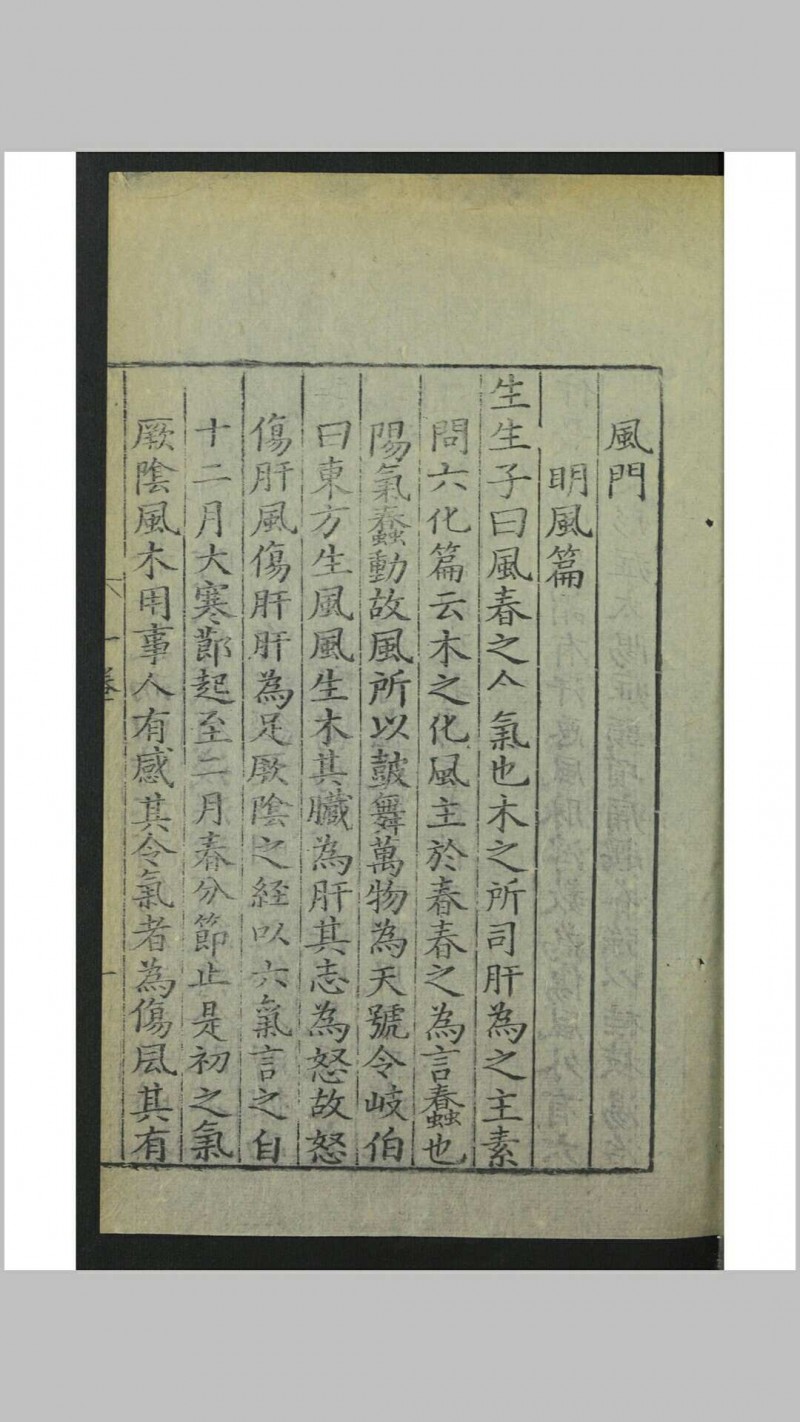 風門
明風篇
生生子曰風春之令氣也木之所司肝為之主素
問六化篇云木之化風主於春春之為言蠢也
陽氣蠢動故風所以皷舞萬物為天號令岐伯
曰東方生風風生木其臟為肝其志為怒故怒
傷肝風傷肝肝為足厥陰之経以六氣言之自
十二月大寒節起至二月春分節止是初之氣
厥陰風木用事人有感其令氣者為傷風其有